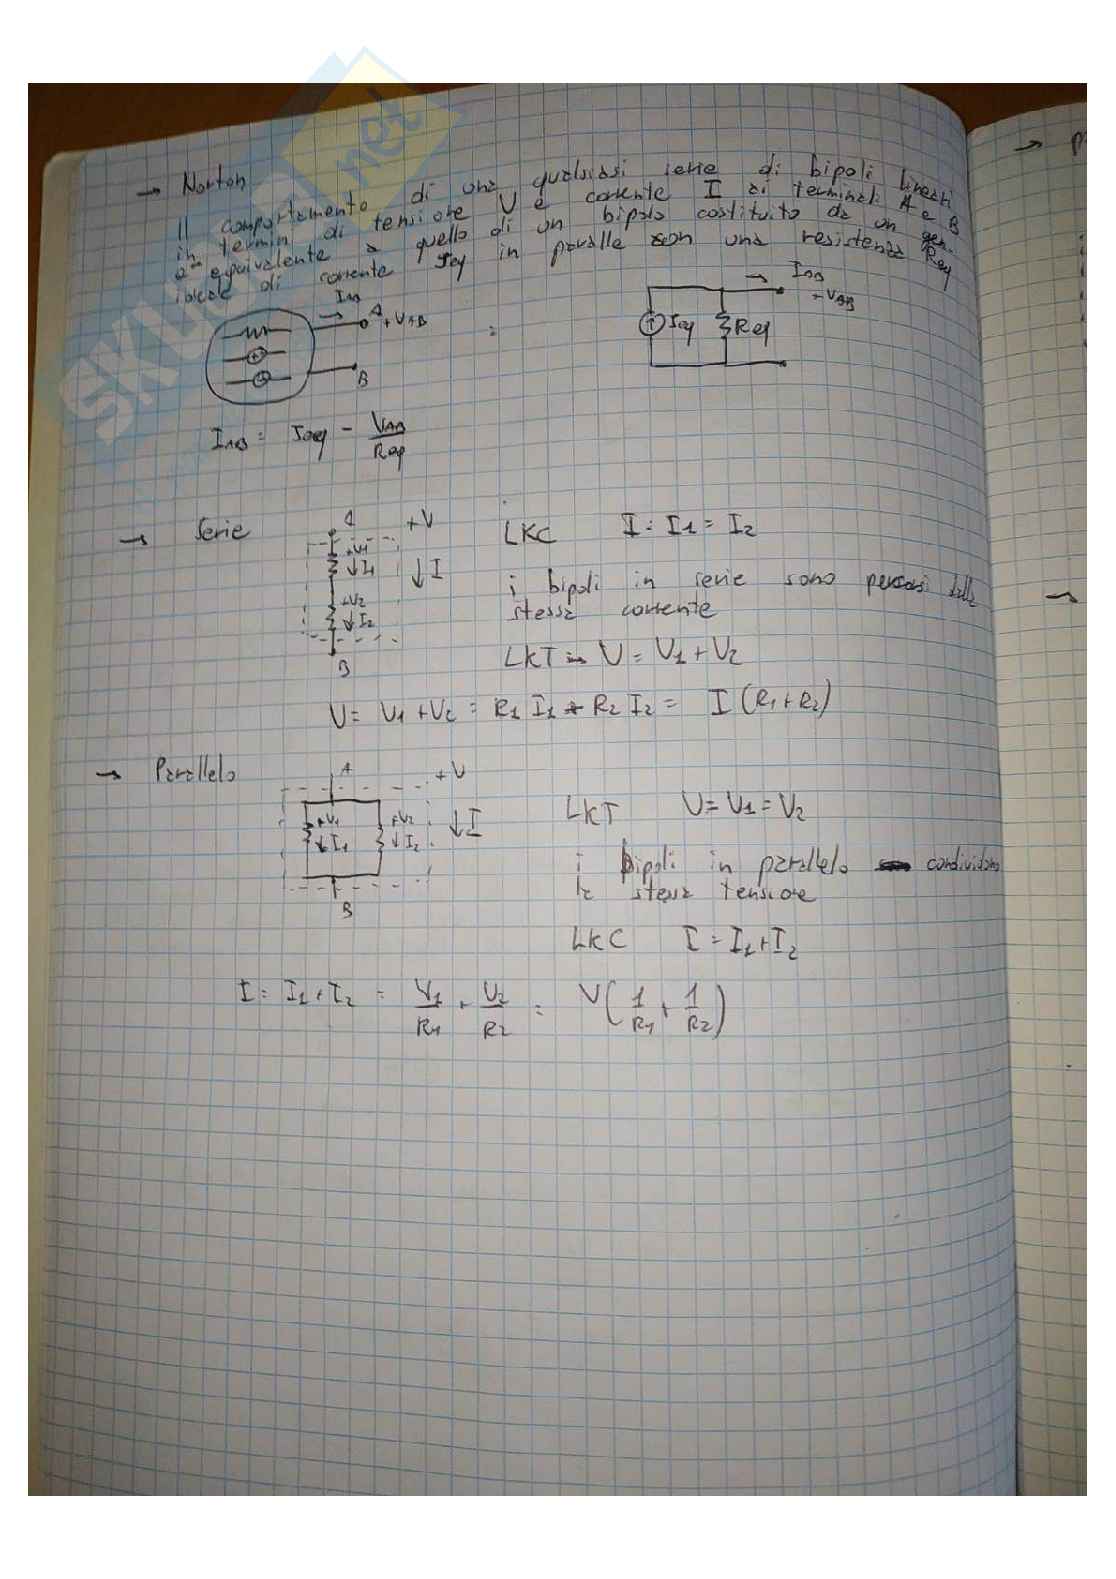 → Norton
Il comportamento di una qualsiasi serie di bipoli lineari
in termin di tensione V e corrente I ai terminali A e B
è equivalente a quello di un bipolo costituito da un gen.
ideale di corrente Ieq in paralle con una resistenza Req
IAB A +VAB
B
=
Ieq Req IAB +VAB
IAB = Ieq - VAB/Req
→ Serie
A +V
+V1 ↓I1 ↓I
+V2 ↓I2
B
LKC I = I1 = I2
i bipoli in serie sono percorsi dalla
stessa corrente
LKT V = V1 + V2
V = V1 + V2 = R1 I1 + R2 I2 = I (R1 + R2)
→ Parallelo
A +V
+V1 ↓I1 +V2 ↓I2 ↓I
B
LKT V = V1 = V2
i bipoli in parallelo condividono
la stessa tensione
LKC I = I1 + I2
I = I1 + I2 = V1/R1 + V2/R2 = V(1/R1 + 1/R2)
→ P
→
SKUOLA
.net